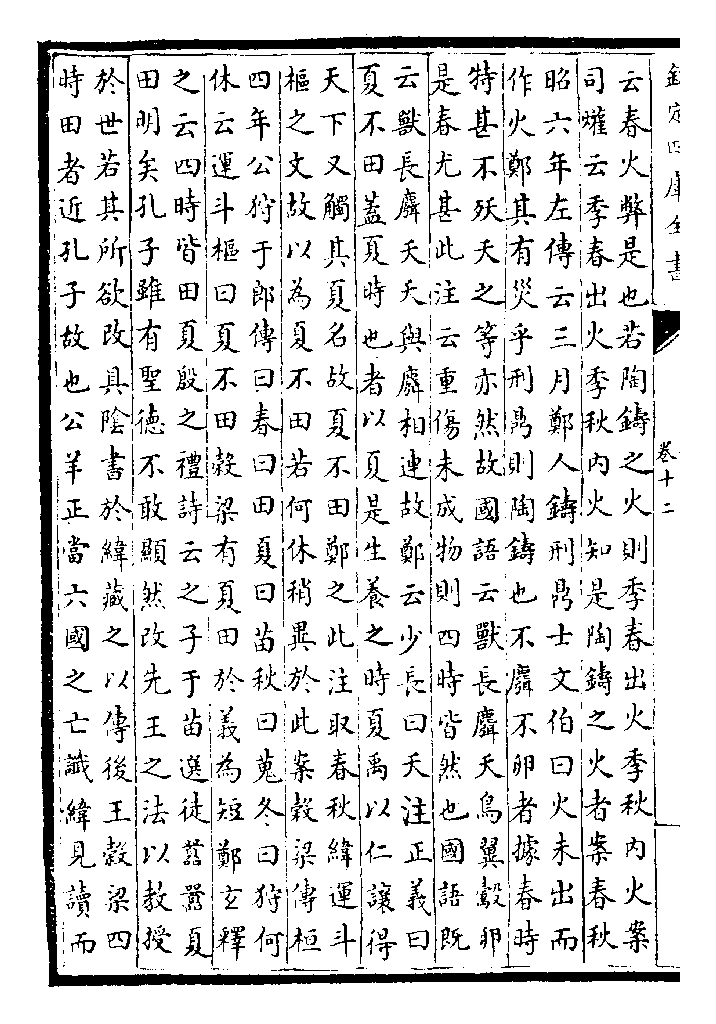 欽定四庫全書
卷十二
云春火弊是也若陶鑄之火則季春出火季秋内火案
司爟云季春出火季秋内火知是陶鑄之火者案春秋
昭六年左傳云三月鄭人鑄刑鼎士文伯曰火未出而
作火鄭其有災乎刑鼎則陶鑄也不麛不卵者據春時
特甚不殀夭之等亦然故國語云獸長麛夭鳥翼鷇卵
是春尤甚此注云重傷未成物則四時皆然也國語既
云獸長麛夭夭與麛相連故鄭云少長曰夭注正義曰
夏不田蓋夏時也者以夏是生養之時夏禹以仁讓得
天下又觸其夏名故夏不田鄭之此注取春秋緯運斗
樞之文故以為夏不田若何休稍異於此案穀梁傳桓
四年公狩于郎傳曰春曰田夏曰苗秋曰蒐冬曰狩何
休云運斗樞曰夏不田穀梁有夏田於義為短鄭玄釋
之云四時皆田夏殷之禮詩云之子于苗選徒囂囂夏
田明矣孔子雖有聖德不敢顯然改先王之法以教授
於世若其所欲改具陰書於緯藏之以傳後王穀梁四
時田者近孔子故也公羊正當六國之亡讖緯見讀而